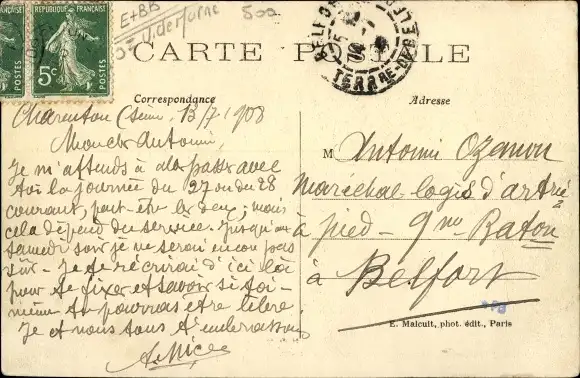 E+BB
500
RÉPUBLIQUE FRANÇAISE
5c
CARTE POSTALE
TERRE DE BELFORT
Correspondance
Adresse
Charenton (Seine 13/7/908
Mon cher Antonin,
Je m'attends à aller passer avec
toi la journée du 27 ou du 28
courant, peut-être les deux; mais
cela dépend du service. Jusqu'au
samedi soir je ne serai encore pas
sûr. Je te récrirai d'ici là
pour te fixer et savoir si toi-
même tu pourras être libre.
Je et nous tous t'embrassons
M Antonin Ozanon
Maréchal logis d'artie
à pied - 9me Baton
à Belfort
E. Malcuit, phot. édit., Paris